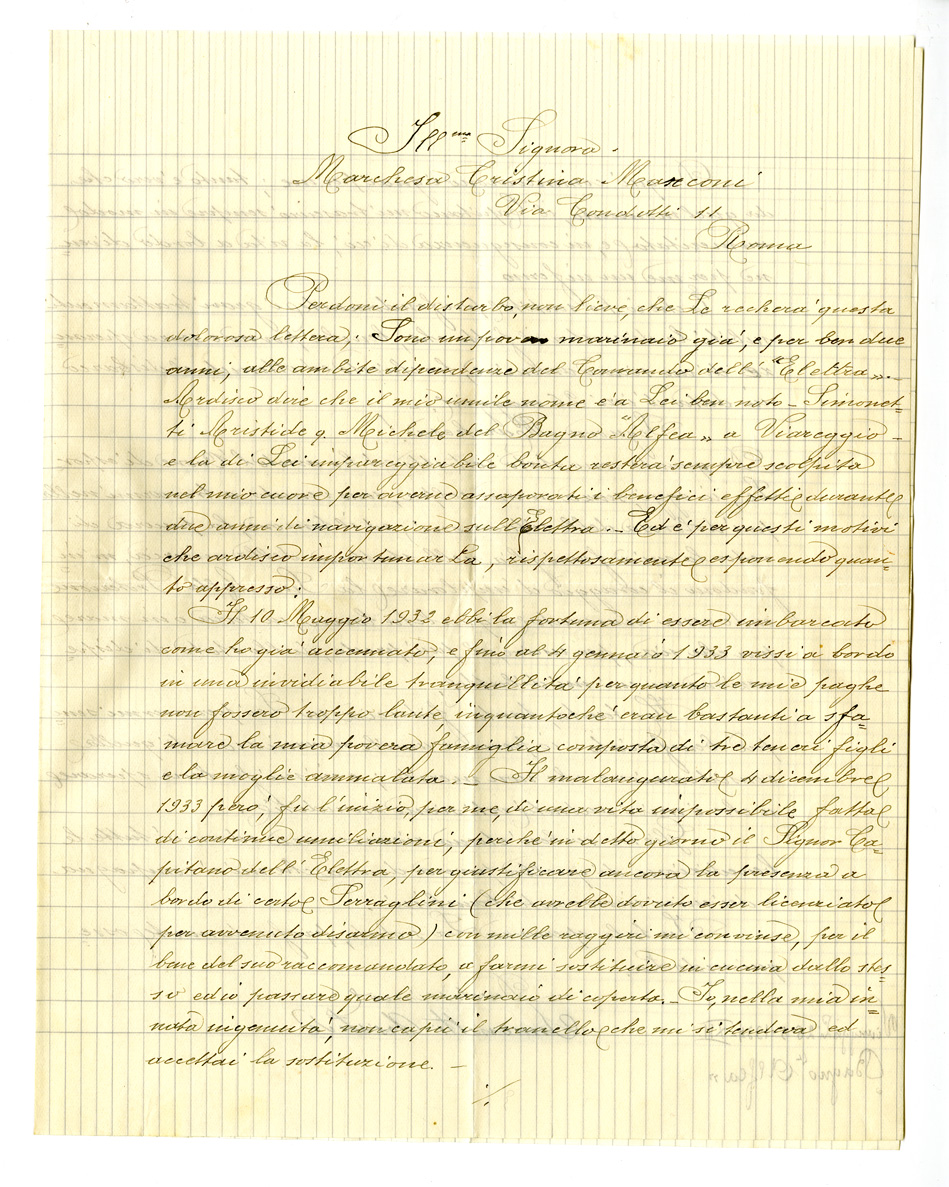 Ill.ma Signora.
Marchesa Cristina Marconi
Via Condotti 11
Roma
Perdoni il disturbo, non lieve, che Le recherá questa
dolorosa lettera,: Sono un povero marinaio giá, e per ben due
anni, alle ambite dipendenze del Comando dell' "Elettra„.-
Ardisco dire che il mio umile nome é a Lei ben noto - Simonet=
ti Aristide q. Michele del Bagno "Alfea„ a Viareggio -
e la di Lei impareggiabile bontá resterá sempre scolpita
nel mio cuore per averne assaporati i benefici effetti durante
due anni di navigazione sull'Elettra.- Ed é per questi motivi
che ardisco importunarLa, rispettosamente esponendo quan=
to appresso:
Il 10 Maggio 1932 ebbi la fortuna di essere imbarcato
come ho giá accennato, e fino al 4 gennaio 1933 vissi a bordo
in una invidiabile tranquillitá per quanto le mie paghe
non fossero troppo laute, inquantoché eran bastanti a sfa=
mare la mia povera famiglia composta di tre teneri figli
e la moglie ammalata.- Il malaugurato 4 dicembre
1933 peró, fu l'inizio, per me, di una vita impossibile fatta
di continue umiliazioni, perché in detto giorno il Signor Ca=
pitano dell' Elettra, per giustificare ancora la presenza a
bordo di certo Terraglini (che avrebbe dovuto esser licenziato
per avvenuto disarmo) con mille raggiri mi convinse, per il
bene del suo raccomandato, a farmi sostituire in cucina dallo stes=
so ed io passare quale marinaio di coperta.- Io, nella mia in=
nata ingenuitá, non capii il tranello che mi si tendeva ed
accettai la sostituzione.-
./.